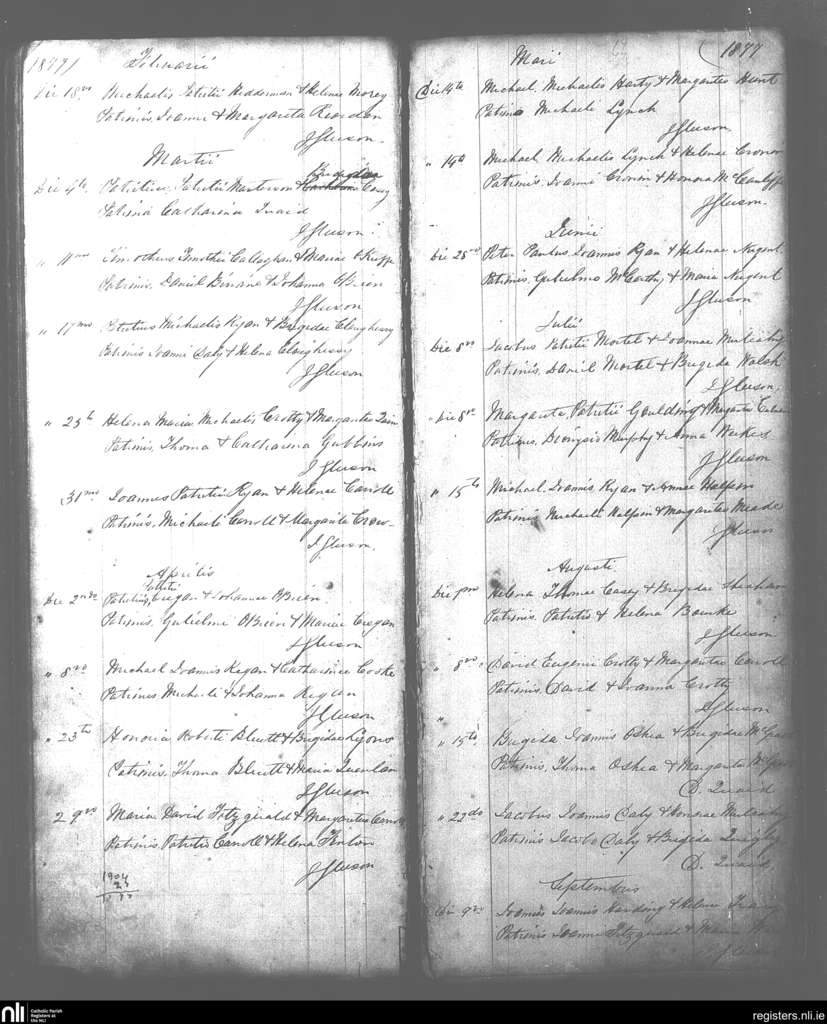 1877
Februarii
Die 18vo Michaelis Patritii Hedderman & Helenae Morey
Patrinis, Joanne & Margarita Reardon
J Gleeson
Martii
Die 4to Patritius, Patritii Masterson & Brigidae Casey
Patrina Catharina Quaid
J Gleeson
" 11mo Timotheus Timothii Callaghan & Mariae O'Keeffe
Patrinis, Daniel & Johanna O'Brien
J Gleeson
" 17mo Patritius Michaelis Ryan & Brigidae Cleaghessy
Patrinis Joanni Daly & Helena Cleaghessy
J Gleeson
" 25to Helena Maria Michaelis Crotty & Margaritae Quin
Patrinis, Thoma & Catharina Gubbins
J Gleeson
31mo Joannes Patritii Ryan & Helenae Carroll
Patrinis, Michaeli Carroll & Margarita Crow
J Gleeson
Aprilis
Die 2ndo Patritius, Patritii Cregan & Johannae O'Brien
Patrinis, Gulielmi O'Brien & Mariae Cregan
J Gleeson
" 8vo Michael Joannis Regan & Catharinae Cooke
Patrinis Michaeli & Johanna Regan
J Gleeson
" 23to Honoria Roberti Bluett & Brigidae Lyons
Patrinis, Thoma Bluett & Maria Quanlan
J Gleeson
29vo Maria David Fitzgerald & Margaritae Carroll
Patrinis, Patritio Carroll & Helena
J Gleeson
1904
27
1877
1877
Maii
Die 14to Michael, Michaelis Harty & Margaritae Hunt
Patrino Michaeli Lynch
J Gleeson
" 14to Michael Michaelis Lynch & Helenae Cronin
Patrinis, Joanni Cronin & Honora McCauliffe
J Gleeson
Junii
Die 28vo Peter Paulus, Joannis Ryan & Helenae Nugent
Patrinis, Gulielmo McCarthy & Maria Nugent
J Gleeson
Julii
Die 8vo Jacobus Patritii Mortel & Joannae Mulcahy
Patrinis, Daniel Mortel & Brigida Walsh
J Gleeson
" Die 8vo Margarita, Patritii Goulding & Margaritae
Patrinis, Dionysio Murphy & Anna Weekes
J Gleeson
" 15to Michael, Joannis Ryan & Annae Halpin
Patrinis Michaeli Halpin & Margarita Meade
J Gleeson
Augusti
Die 1mo Helena Thomae Casey & Brigidae Sheahan
Patrinis, Patritio & Helena Bourke
J Gleeson
" 8vo David Eugenii Crotty & Margaritae Carroll
Patrinis, David & Joanna Crotty
J Gleeson
" 15to Brigida Joannis O'Shea & Brigidae
Patrinis, Thoma O'Shea & Margarita
D. Quaid
" 22do Jacobus Joannis Daly & Honorae Mulcahy
Patrinis Jacobo Daly & Brigida Quigley
D. Quaid
Septembris
Die 9vo Joannes Joannis Harding & Helenae
Patrinis Joanni Fitzgerald & Maria
J Gleeson
nli
Catholic Parish
Registers at
the NLI
registers.nli.ie